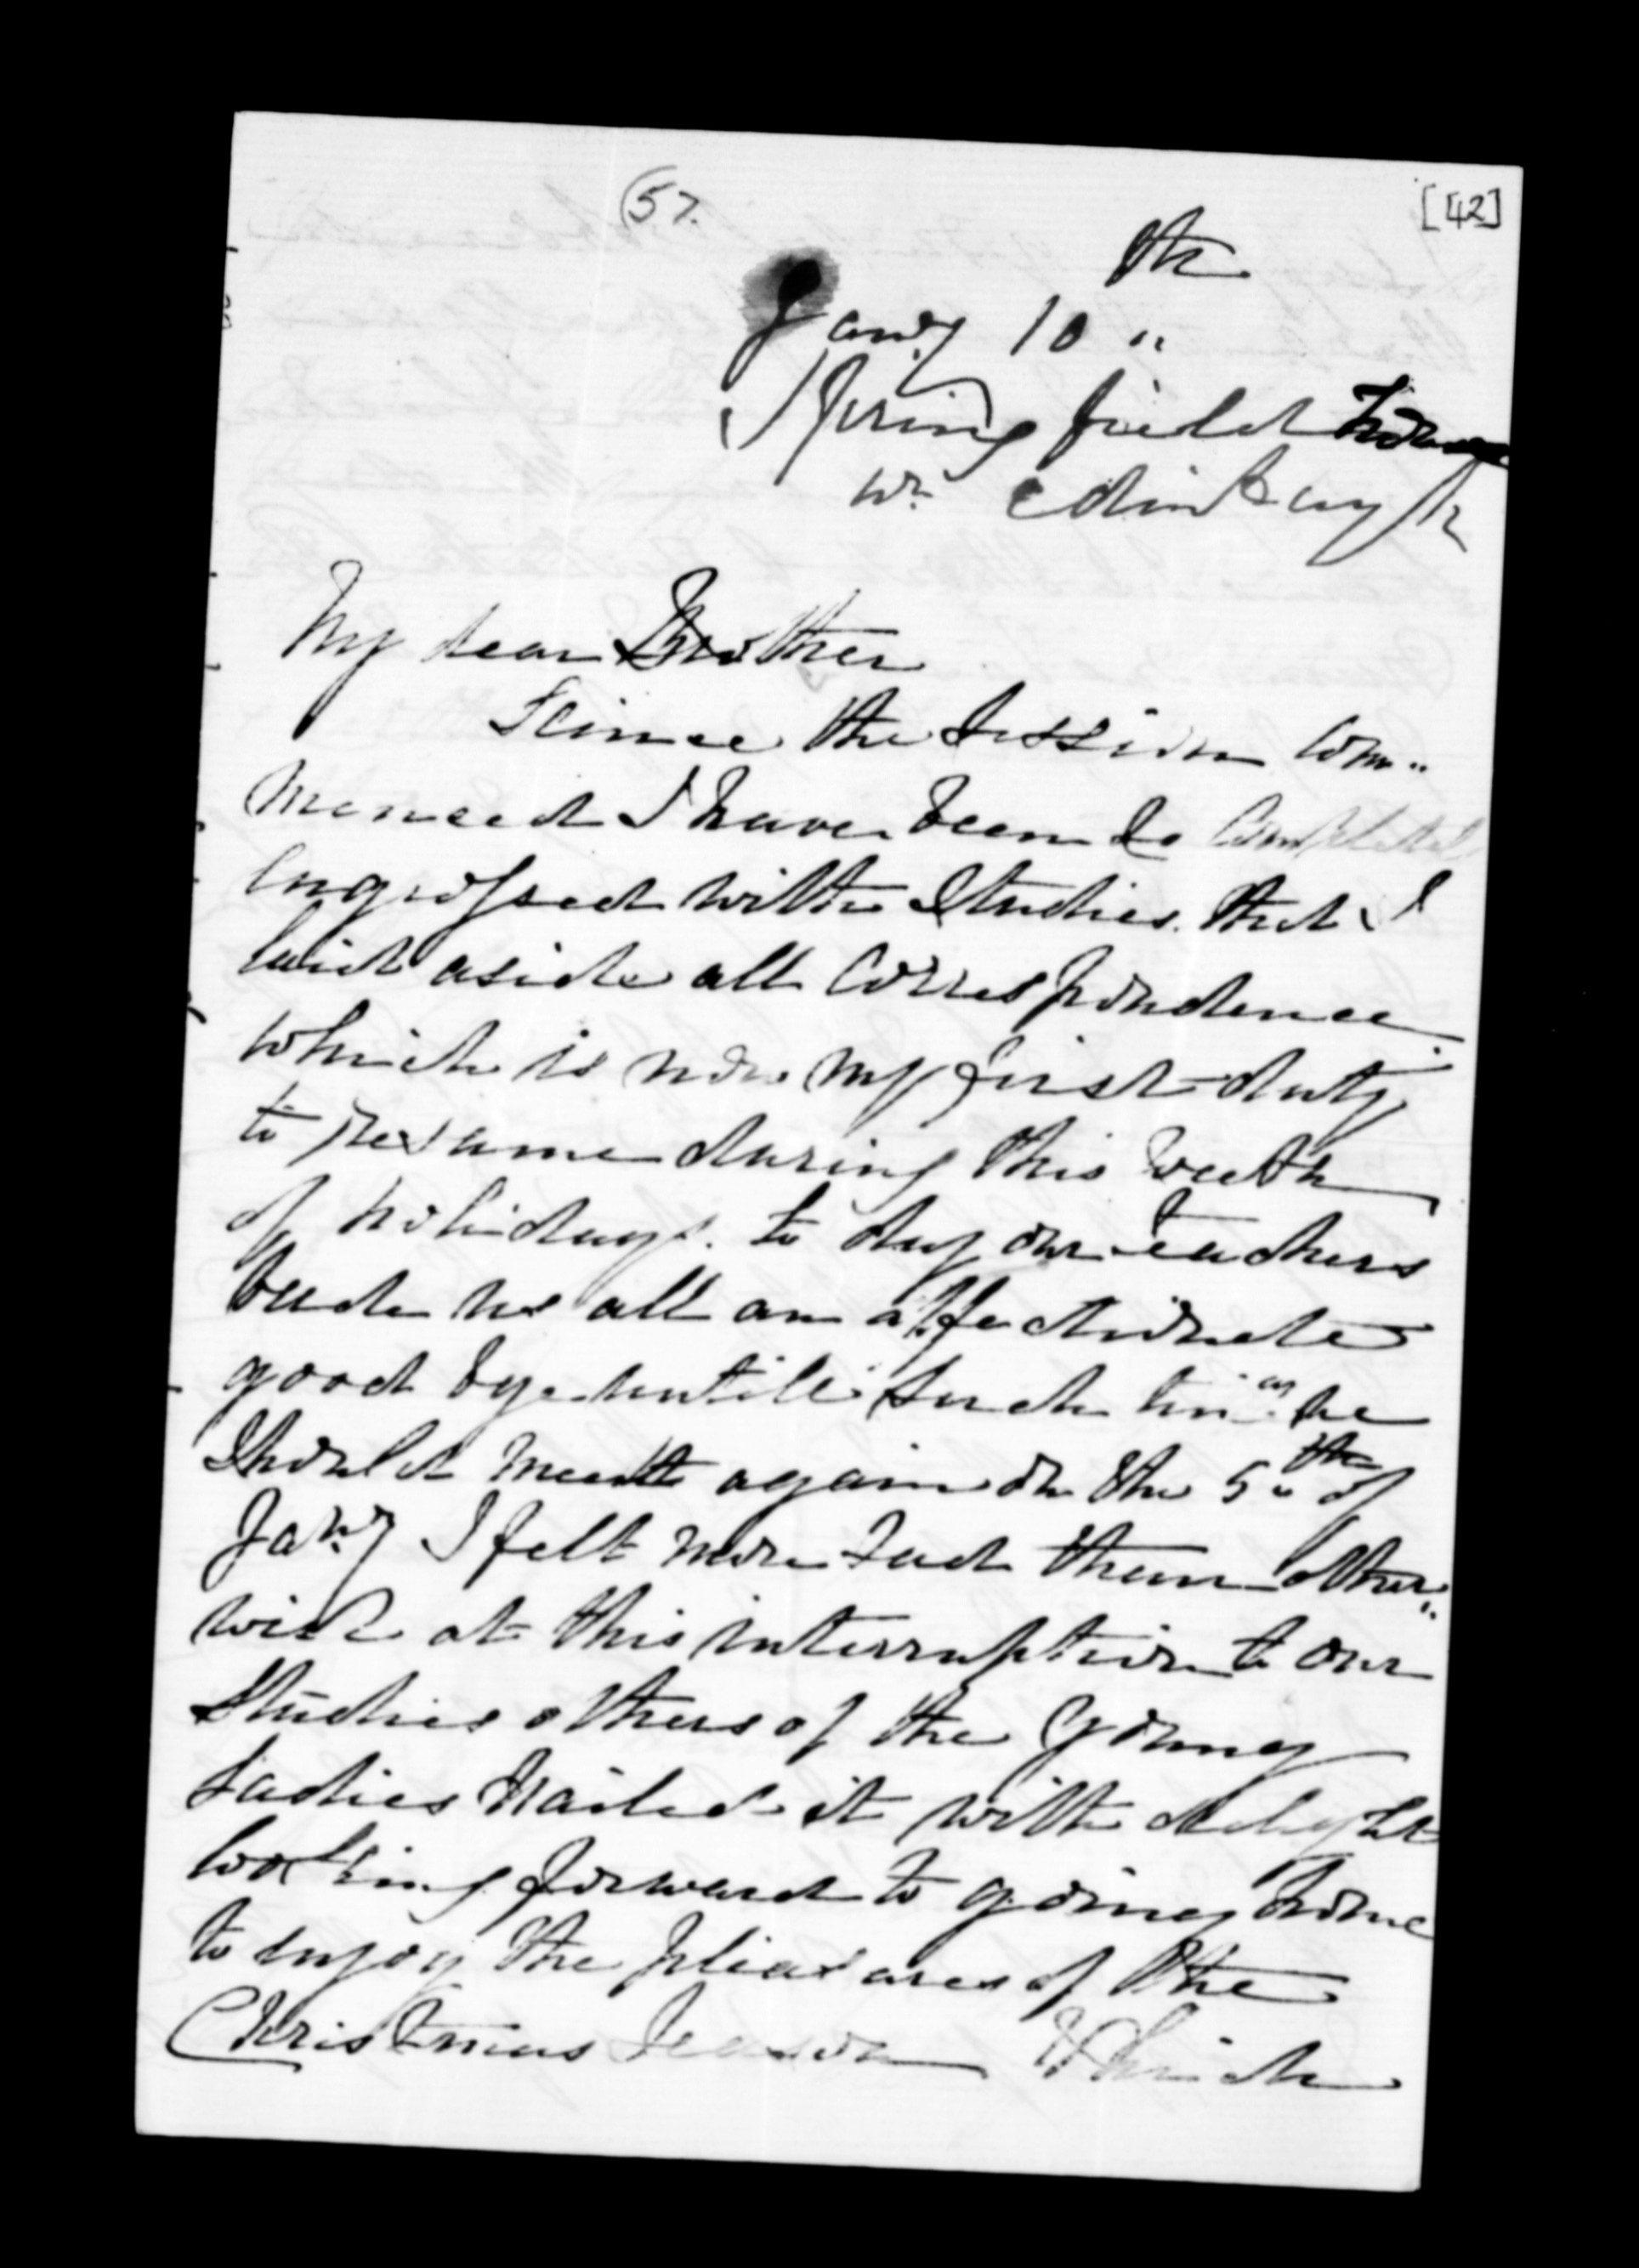 (57.
[42]
Janry 10th
Springfield House
nr Edinburgh
My dear Brother
Scince the Session com-
menced I have been so completely
engrossed with studies. that I
laid aside all correspondence
which is now my first duty
to resume during this week
of holidays. to day our teachers
bade us all an affectionate
good bye untill such time as we
should meet again on the 5th of
Janry I felt more sad than other-
wise at this interruption to our
studies others of the young
Ladies hailed it with delight
looking forward to going home
to enjoy the pleasures of the
Christmas season which